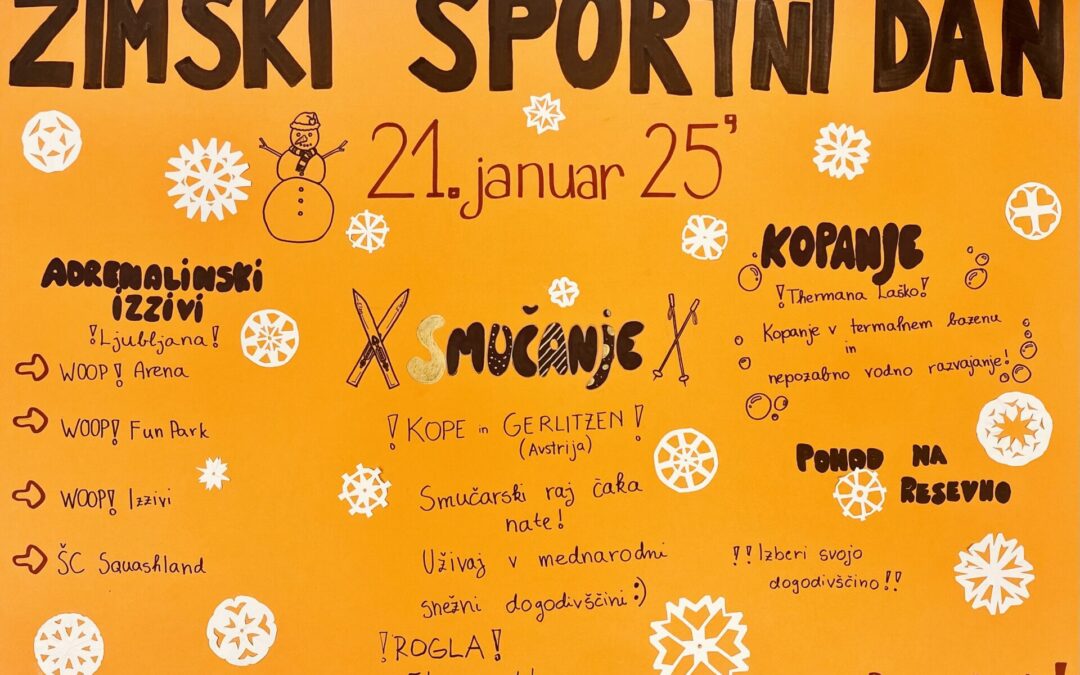 ZIMSKI ŠPORTNI DAN
21. januar 25'
ADRENALINSKI
IZZIVI
! Ljubljana !
WOOP! Arena
WOOP! Fun Park
WOOP! Izzivi
ŠC Squashland
SMUČANJE
! KOPE in GERLITZEN !
(Avstrija)
Smučarski raj čaka
nate!
Uživaj v mednarodni
snežni dogodivščini :)
! ROGLA !
KOPANJE
! Thermana Laško !
Kopanje v termalnem bazenu
in
nepozabno vodno razvajanje!
POHOD NA
RESEVNO
!! Izberi svojo
dogodivščino !!